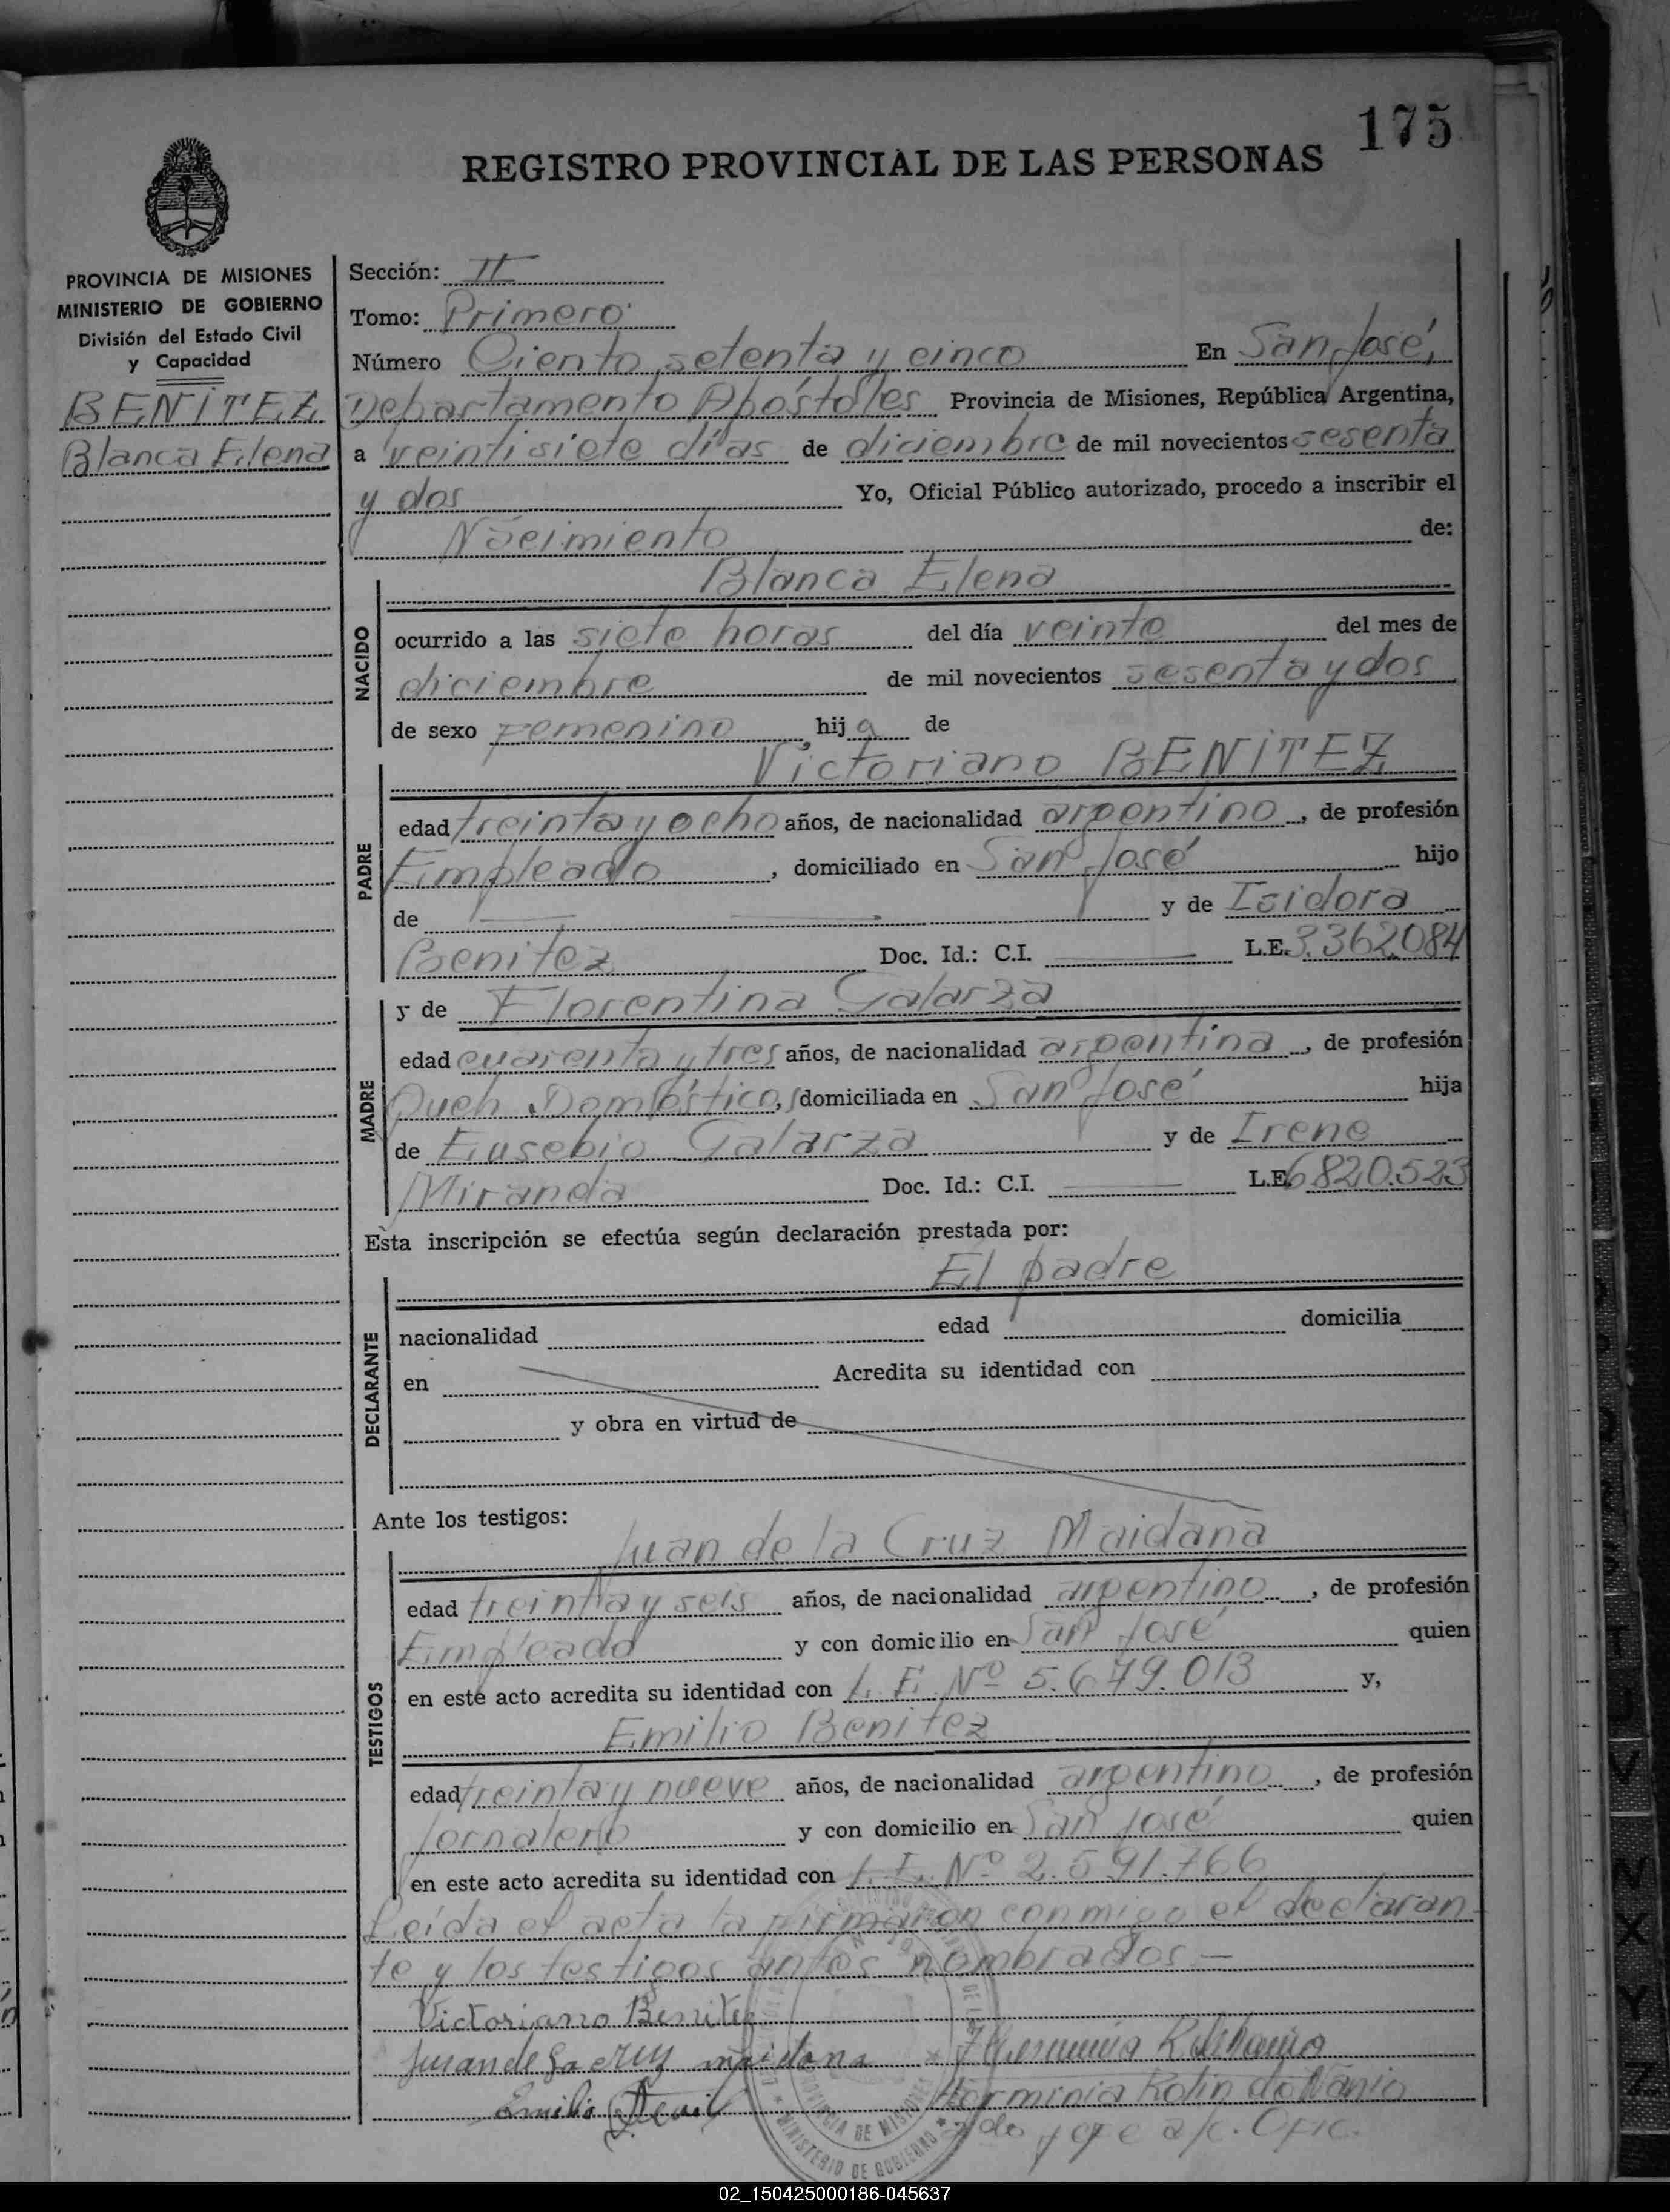 175
REGISTRO PROVINCIAL DE LAS PERSONAS
PROVINCIA DE MISIONES
MINISTERIO DE GOBIERNO
División del Estado Civil
y Capacidad
BENÍTEZ
Blanca Elena
Sección: II
Tomo: Primero
Número Ciento setenta y cinco En San José,
Departamento Apóstoles Provincia de Misiones, República Argentina,
a veintisiete días de diciembre de mil novecientos sesenta
y dos Yo, Oficial Público autorizado, procedo a inscribir el
Nacimiento de:
Blanca Elena
NACIDO
ocurrido a las siete horas del día veinte del mes de
diciembre de mil novecientos sesenta y dos
de sexo femenino, hija de
Victoriano BENÍTEZ
PADRE
edad treinta y ocho años, de nacionalidad argentino, de profesión
Empleado, domiciliado en San José hijo
de y de Isidora
Benitez Doc. Id.: C.I. L.E. 3.362.084
MADRE
y de Florentina Galarza
edad cuarenta y tres años, de nacionalidad argentina, de profesión
Queh. Domésticos, domiciliada en San José hija
de Eusebio Galarza y de Irene
Miranda Doc. Id.: C.I. L.E. 6.820.523
Esta inscripción se efectúa según declaración prestada por:
El padre
DECLARANTE
nacionalidad edad domicilia
en Acredita su identidad con
y obra en virtud de
Ante los testigos:
Juan de la Cruz Maidana
TESTIGOS
edad treinta y seis años, de nacionalidad argentino, de profesión
Empleado y con domicilio en San José quien
en este acto acredita su identidad con L. E. Nº 5.679.013 y,
Emilio Benitez
edad treinta y nueve años, de nacionalidad argentino, de profesión
Jornalero y con domicilio en San José quien
en este acto acredita su identidad con L. E. Nº 2.591.766
Leída el acta la firmaron conmigo el declaran-
te y los testigos antes nombrados.—
Victoriano Benitez
Juan de la cruz maidana
Emilio
Herminia
PROVINCIA DE MISIONES
MINISTERIO DE GOBIERNO
jefe a/c. Ofic.
02_150425000186-045637